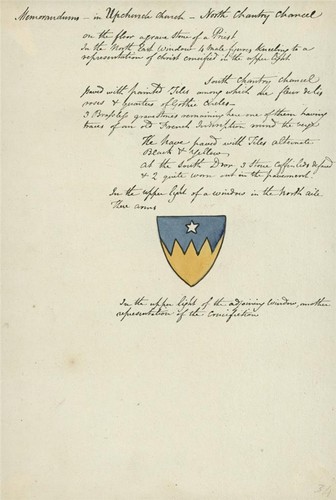 Memorandums – in Upchurch Church – North Chantry Chancel
on the floor a grave stone of a Priest
In the North East Window 4 small figures kneeling to a
representation of Christ crucified in the upper light
South Chantry Chancel
paved with painted Tiles among which are fleur de lis
roses & quarters of Gothic circles
3 Brassless gravestones remaining here one of them having
traces of an old French Inscription round the verge
The Nave paved with Tiles alternate
Black & Yellow
at the South Door 3 Stone Coffin Lids
& 2 quite worn out in the pavement.
In the upper light of a window in the North aile
these arms
In the upper light of the adjoining window, another
representation of the Crucifixion